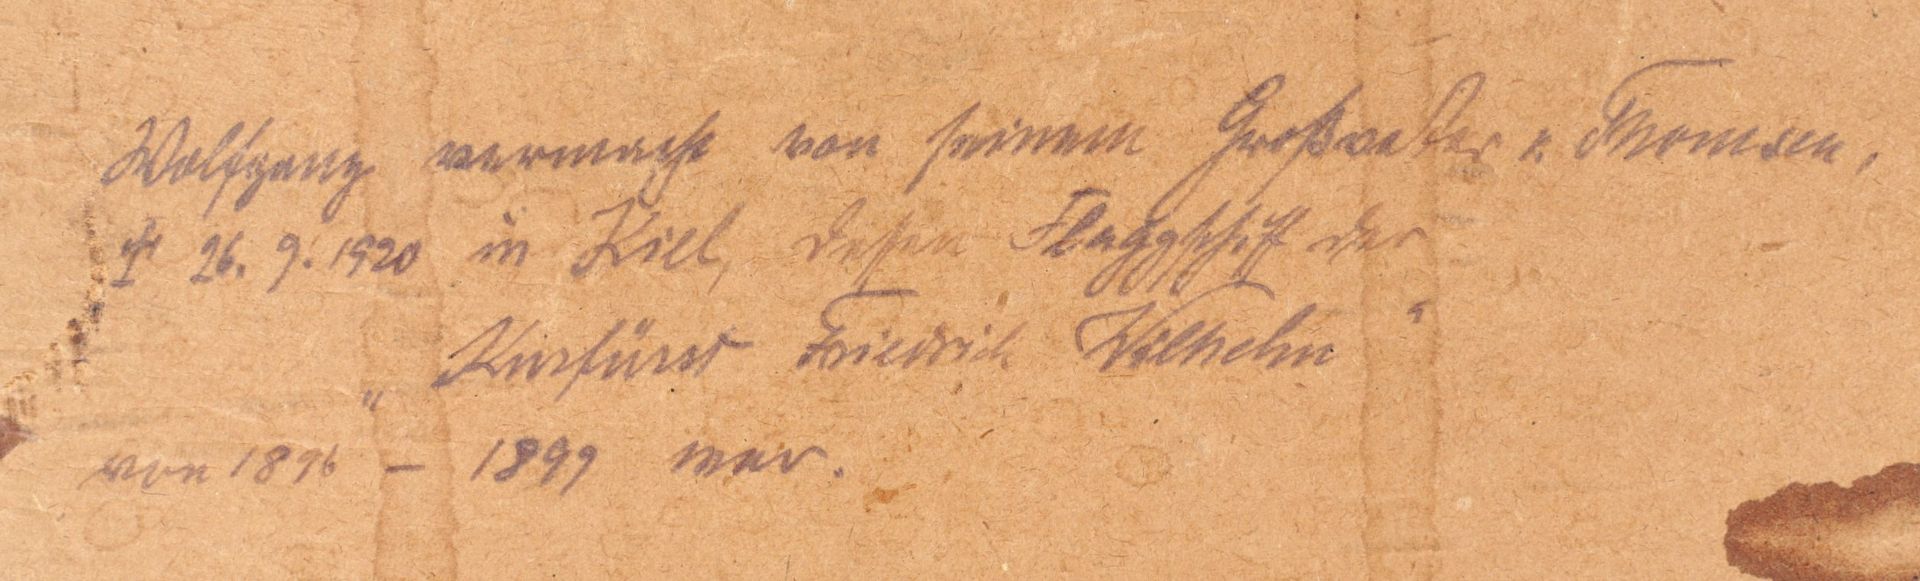 Wolfgang vermacht von seinem Großvater v. Thomsen,
† 26. 9. 1920 in Kiel, dessen Flaggschiff der
„Kurfürst Friedrich Wilhelm“
von 1896 – 1899 war.